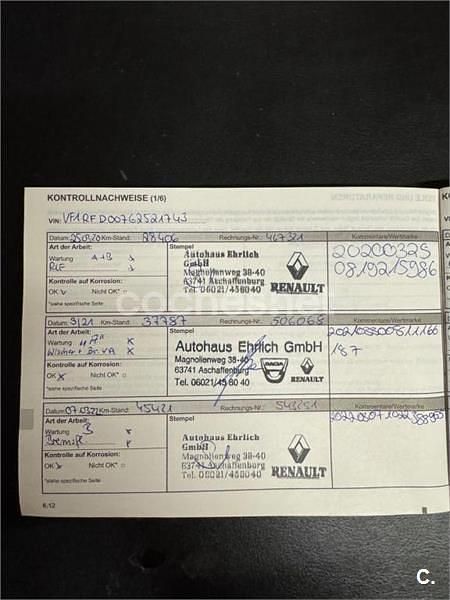 KONTROLLNACHWEISE (1/6)
VIN: VF1RFD00762521743
Datum: 25.03.20 Km-Stand: Rechnungs-Nr.: 467321 Kommentare/Wertmarke
Art der Arbeit: Stempel
Wartung A+B x
Autohaus Ehrlich
GmbH
Magnolienweg 38-40
63741 Aschaffenburg
Tel. 06021/458040
RENAULT
20200325
Kontrolle auf Korrosion:
OK Nicht OK*
*siehe spezifische Seite
Datum: 9/21 Km-Stand: 37787 Rechnungs-Nr.: 506068 Kommentare/Wertmarke
Art der Arbeit: Stempel
Wartung "A" x
Wischer + x
Autohaus Ehrlich GmbH
Magnolienweg 38-40
63741 Aschaffenburg
Tel. 06021/45 80 40
DACIA
RENAULT
187
Kontrolle auf Korrosion:
OK x Nicht OK*
*siehe spezifische Seite
Datum: Km-Stand: 45421 Rechnungs-Nr.: Kommentare/Wertmarke
Art der Arbeit: Stempel
Wartung B x
Bremsfl.
Autohaus Ehrlich
GmbH
Magnolienweg 38-40
63741 Aschaffenburg
Tel. 06021/458040
RENAULT
Kontrolle auf Korrosion:
OK Nicht OK*
*siehe spezifische Seite
6.12
C.